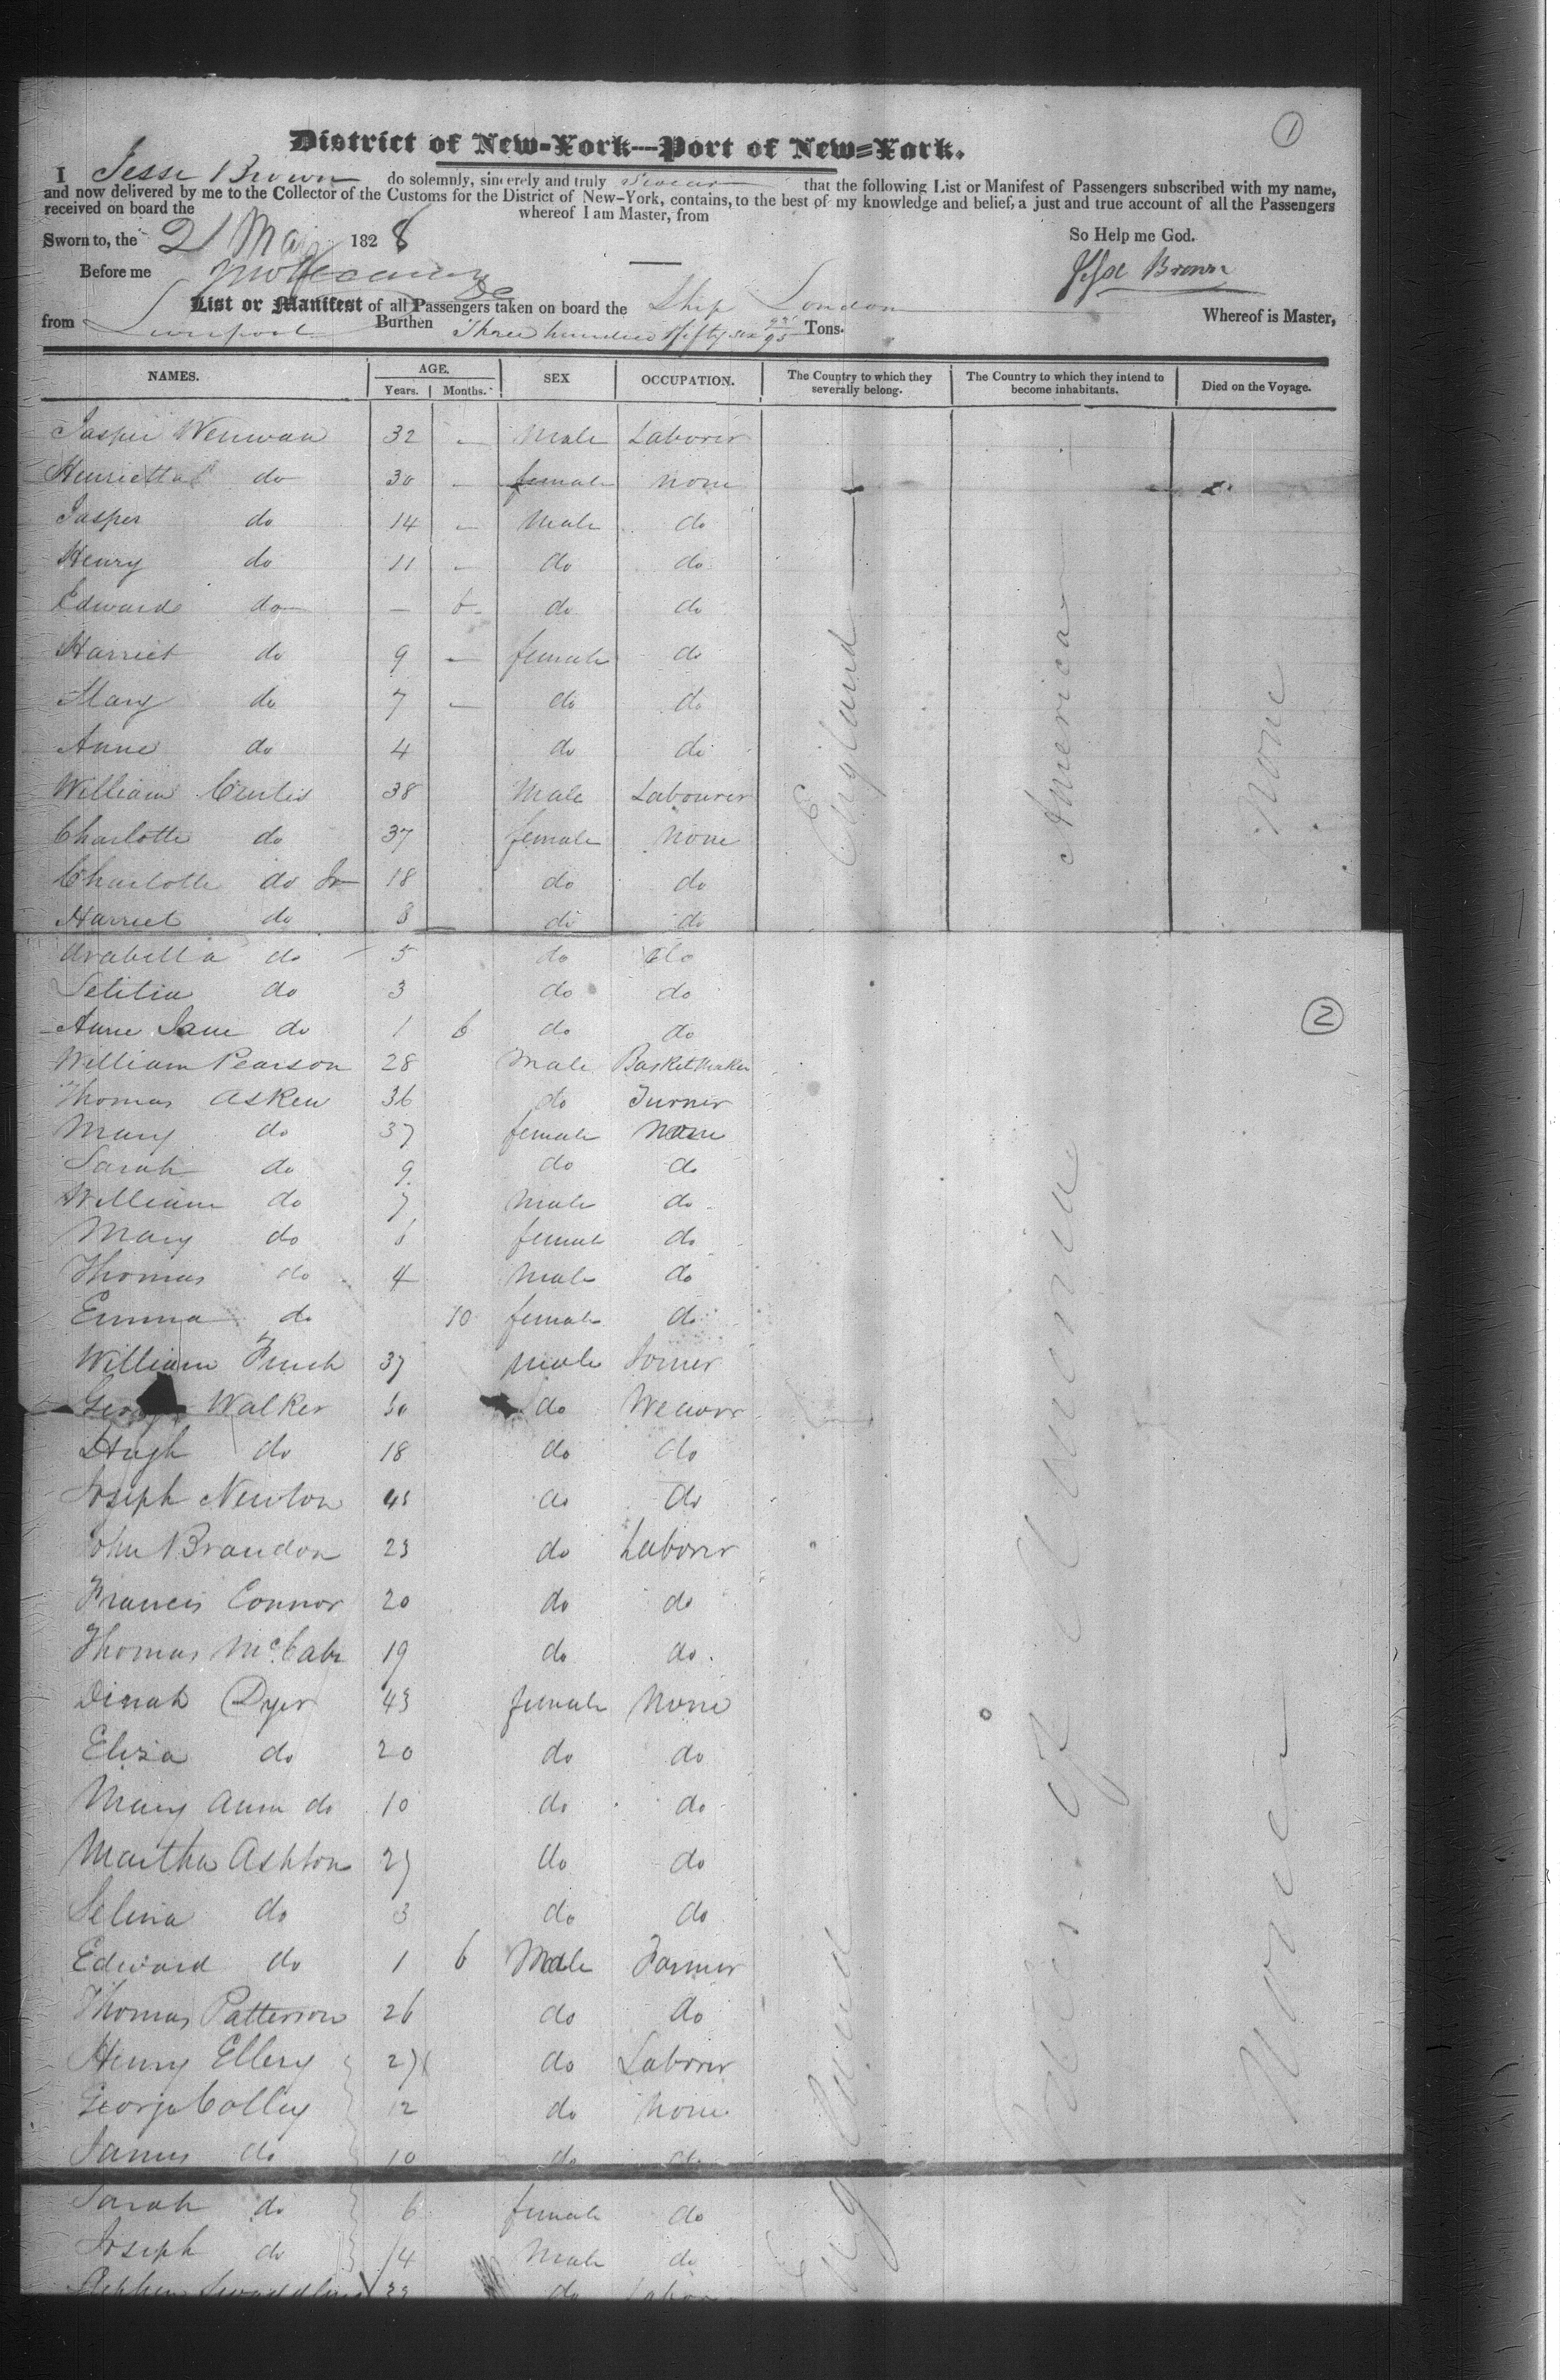 1
District of New-York—Port of New-York.
I Jesse Brown do solemnly, sincerely and truly swear that the following List or Manifest of Passengers subscribed with my name,
and now delivered by me to the Collector of the Customs for the District of New-York, contains, to the best of my knowledge and belief, a just and true account of all the Passengers
received on board the whereof I am Master, from
Sworn to, the 21 May 1828 So Help me God.
Before me Jesse Brown
List or Manifest of all Passengers taken on board the Ship London Whereof is Master,
from Liverpool Burthen Three hundred & fifty six 95 Tons.
NAMES. AGE. SEX OCCUPATION. The Country to which they severally belong. The Country to which they intend to become inhabitants. Died on the Voyage.
Years. Months.
Jasper Wenwan 32 - Male Laborer
Henrietta do 30 - female none
Jasper do 14 - Male do
Henry do 11 - do do
Edward do - 6 do do
Harriet do 9 - female do
Mary do 7 - do do
Anne do 4 do do
England America None
William Curtis 38 Male Labourer
Charlotte do 37 female None
Charlotte do Jr 18 do do
Harriet do 8 do do
Arabella do 5 do do
Letitia do 3 do do
2
Anne Jane do 1 6 do do
William Pearson 28 Male Basket Maker
Thomas Askew 36 do Turner
Mary do 37 female None
Sarah do 9 do do
William do 7 Male do
Mary do female do
Thomas do 4 Male do
Emma do 10 female do
William Finch 37 male Joiner
Walker do Weaver
Hugh do 18 do do
Joseph Newton 45 do do
John Brandon 23 do Laborer
Francis Connor 20 do do
Thomas McCabe 19 do do
Dinah Dyer 43 female None
Eliza do 20 do do
Mary Ann do 10 do do
Martha Ashton 27 do do
Selina do 3 do do
Edward do 1 6 Male Farmer
Thomas Patterson 26 do do
Henry Ellery 27 do Laborer
George Colley 12 do None
James do 10 do do
Sarah do 6 female do
Joseph do 14 Male do
Stephen do
England States of America None